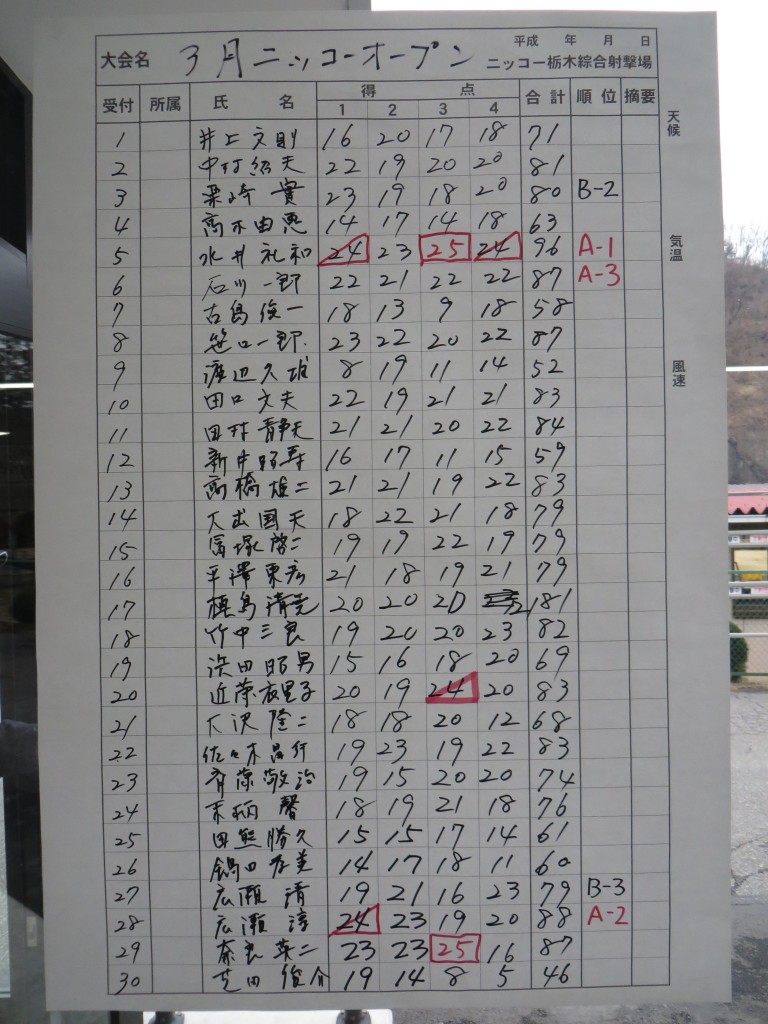 平成 年 月 日
大会名 3月ニッコーオープン ニッコー栃木綜合射撃場
受付 所属 氏 名 得 点 合計 順位 摘要
1 2 3 4
天候
気温
風速
1 井上文則 16 20 17 18 71
2 中村紹夫 22 19 20 20 81
3 栗崎 實 23 19 18 20 80 B-2
4 高木由恵 14 17 14 18 63
5 水井礼和 24 23 25 24 96 A-1
6 石川一郎 22 21 22 22 87 A-3
7 古島俊一 18 13 9 18 58
8 笹口一郎 23 22 20 22 87
9 渡辺久雄 8 19 11 14 52
10 田口文夫 22 19 21 21 83
11 田村静夫 21 21 20 22 84
12 新井昭寿 16 17 11 15 59
13 高橋雄二 21 21 19 22 83
14 大出国夫 18 22 21 18 79
15 冨塚啓二 19 19 22 19 79
16 平澤 21 18 19 21 79
17 槙島清 20 20 20 21 81
18 竹中三良 19 20 20 23 82
19 浜田昭男 15 16 18 20 69
20 近藤衣里子 20 19 24 20 83
21 大沢隆二 18 18 20 12 68
22 佐々木昌行 19 23 19 22 83
23 斉藤敬治 19 15 20 20 74
24 末柄 馨 18 19 21 18 76
25 田熊勝久 15 15 17 14 61
26 鍋田孝美 14 17 18 11 60
27 広瀬 清 19 21 16 23 79 B-3
28 広瀬 淳 24 23 19 20 88 A-2
29 奈良英二 23 23 25 16 87
30 芝田俊介 19 14 8 5 46